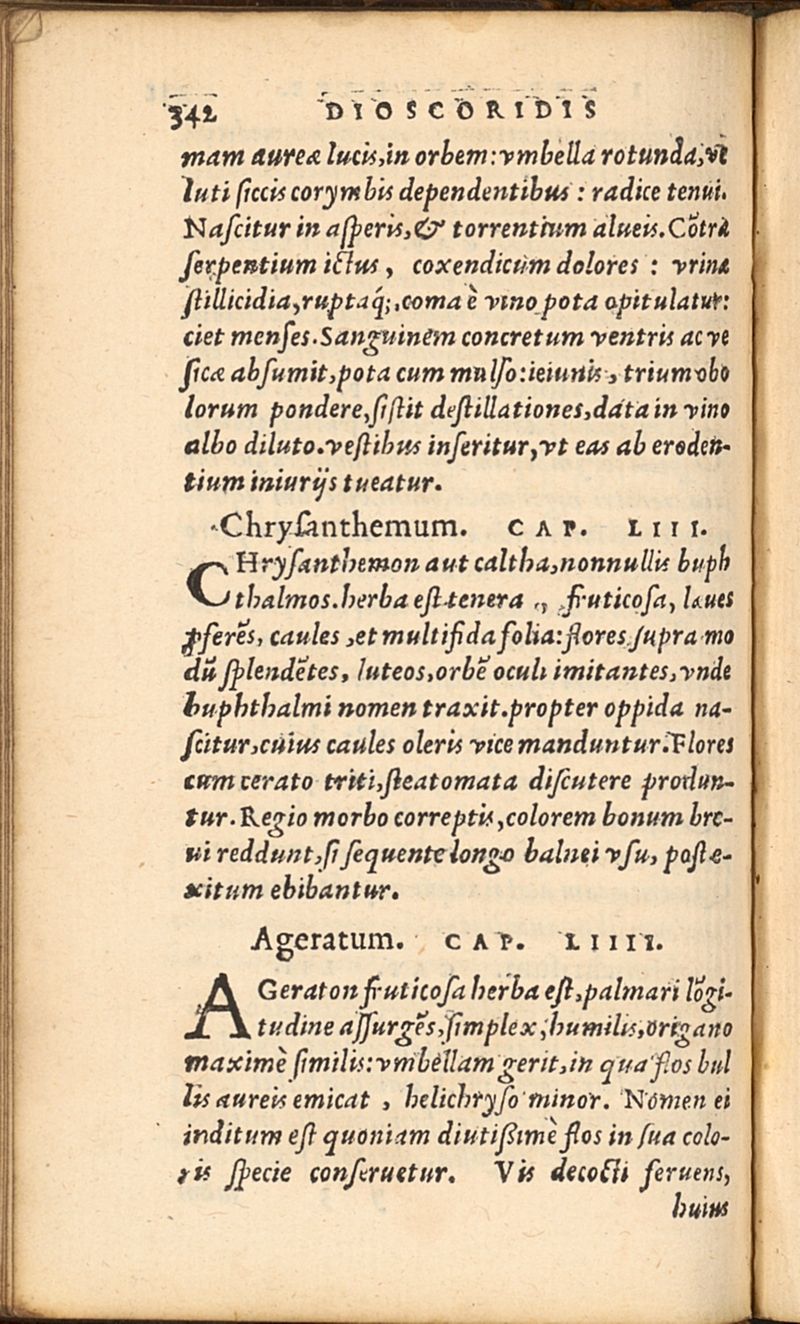 342 DIOSCORIDIS
mam aureæ lucis, in orbem: vmbella rotunda, ve
luti ſiccis corymbis dependentibus : radice tenui.
Naſcitur in aſperis, & torrentium alueis. Cõtra
ſerpentium ictus, coxendicum dolores : vrinæ
ſtillicidia, ruptaq́;, coma è vino pota opitulatur:
ciet menſes. Sanguinem concretum ventris ac ve
ſicæ abſumit, pota cum mulſo: ieiunis, trium obo
lorum pondere, ſiſtit deſtillationes, data in vino
albo diluto. veſtibus inſeritur, vt eas ab eroden-
tium iniurijs tueatur.
Chryſanthemum. CAP. LIII.
CHryſanthemon aut caltha, nonnullis buph
thalmos. herba eſt tenera, fruticoſa, læues
ꝓferẽs, caules, et multifida folia: flores ſupra mo
dũ ſplendẽtes, luteos, orbẽ oculi imitantes, vnde
buphthalmi nomen traxit. propter oppida na-
ſcitur, cuius caules oleris vice manduntur. Flores
cum cerato triti, ſteatomata diſcutere produn-
tur. Regio morbo correptis, colorem bonum bre-
ui reddunt, ſi ſequente longo balnei vſu, poſt e-
xitum ebibantur.
Ageratum. CAP. LIIII.
AGeraton fruticoſa herba eſt, palmari lõgi-
tudine aſſurgẽs, ſimplex, humilis, origano
maximè ſimilis: vmbellam gerit, in qua flos bul
lis aureis emicat, helichryſo minor. Nomen ei
inditum eſt quoniam diutiſsimè flos in ſua colo-
ris ſpecie conſeruetur. Vis decocti feruens,
huius